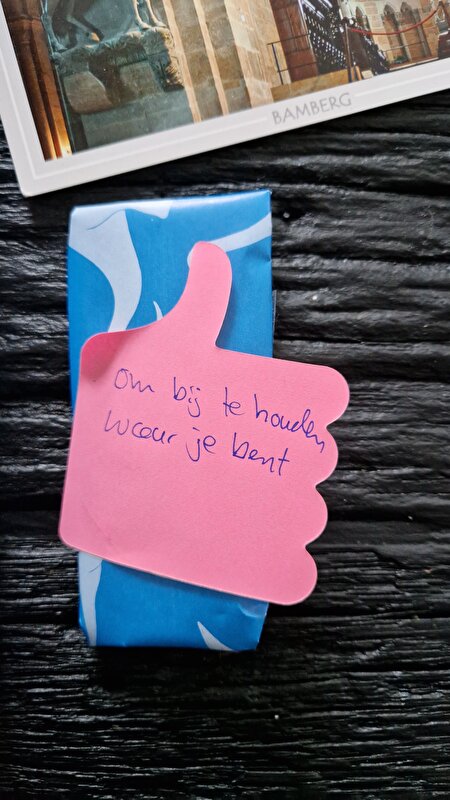 BAMBERG
om bij te houden
waar je bent